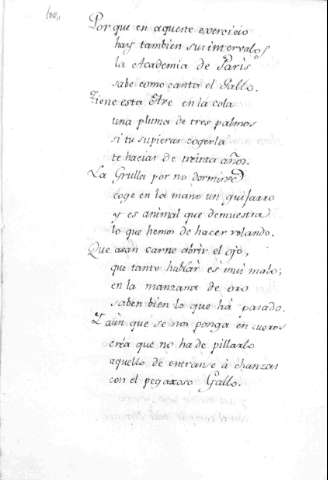 Porque en aqueste exercicio
hay tambien sus intervalos
la Academia de Paris
sabe como canta el Gallo.
Tiene esta Ave en la cola
una pluma de tres palmos
si tu supieras cogerla
te hacias de treinta años.
La Grulla por no dormirse
coge en la mano un guijarro
y es animal que demuestra
lo que hemos de hacer velando.
Que asan carne abrir el ojo,
que tanto hablar es mui malo;
en la manzana de oro
saben bien lo que há pasado.
Y aún que se nos ponga en cueros
crea que no ha de pillarlo
aquello de entrarse á chanzas
con el pegaxoso Gallo.